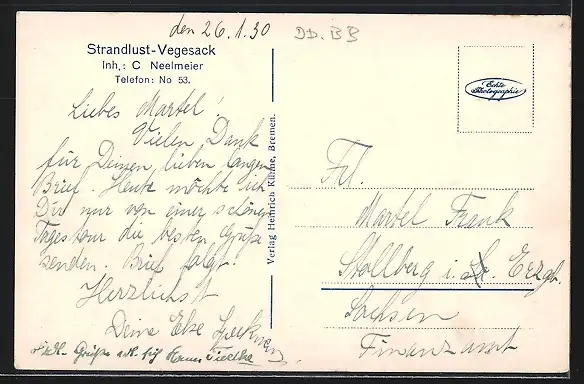 den 26.1.30
DD. BB
Strandlust-Vegesack
Inh.: C Neelmeier
Telefon: No 53.
Echte
Photographie
Liebes Martel!
Vielen Dank
für Deinen lieben langen
Brief. Heute möchte ich
Dir nur von einer schönen
Tagestour die besten Grüße
senden. Brief folgt.
Herzlichst
Deine Else
Grüße
Verlag Heinrich Kühne, Bremen.
Frl.
Martel Frank
Stollberg i. Erzgb.
Sachsen
Finanzamt